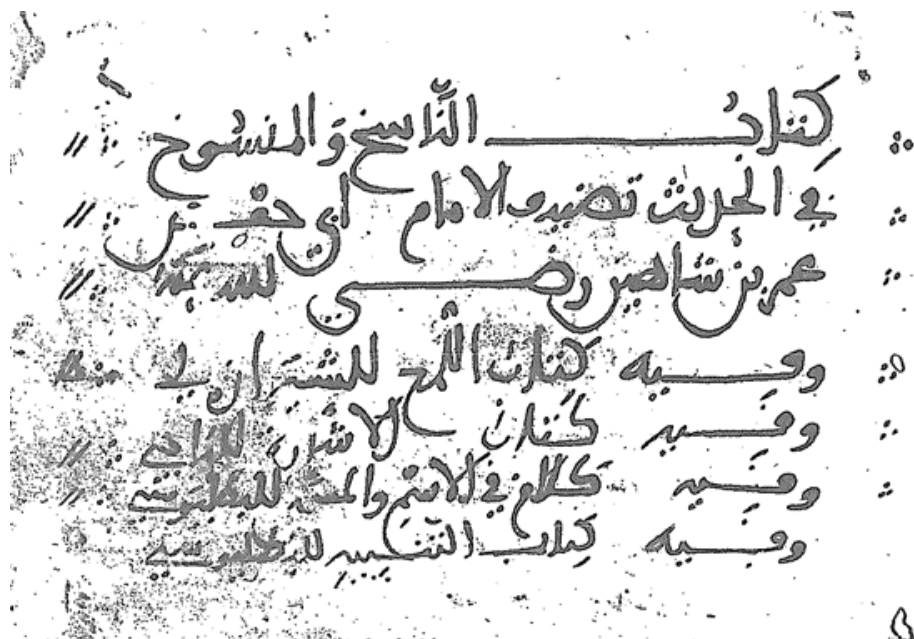 كتاب الناسخ والمنسوخ
في الحديث تصنيف الامام ابي حفص
عمر بن شاهين رضي الله عنه
وفيه كتاب اللمع للشيرازي
وفيه كتاب الاشارة للباجي
وفيه كلام في الاسم والمسمى للبطليوسي
وفيه كتاب التنبيه للبطليوسي